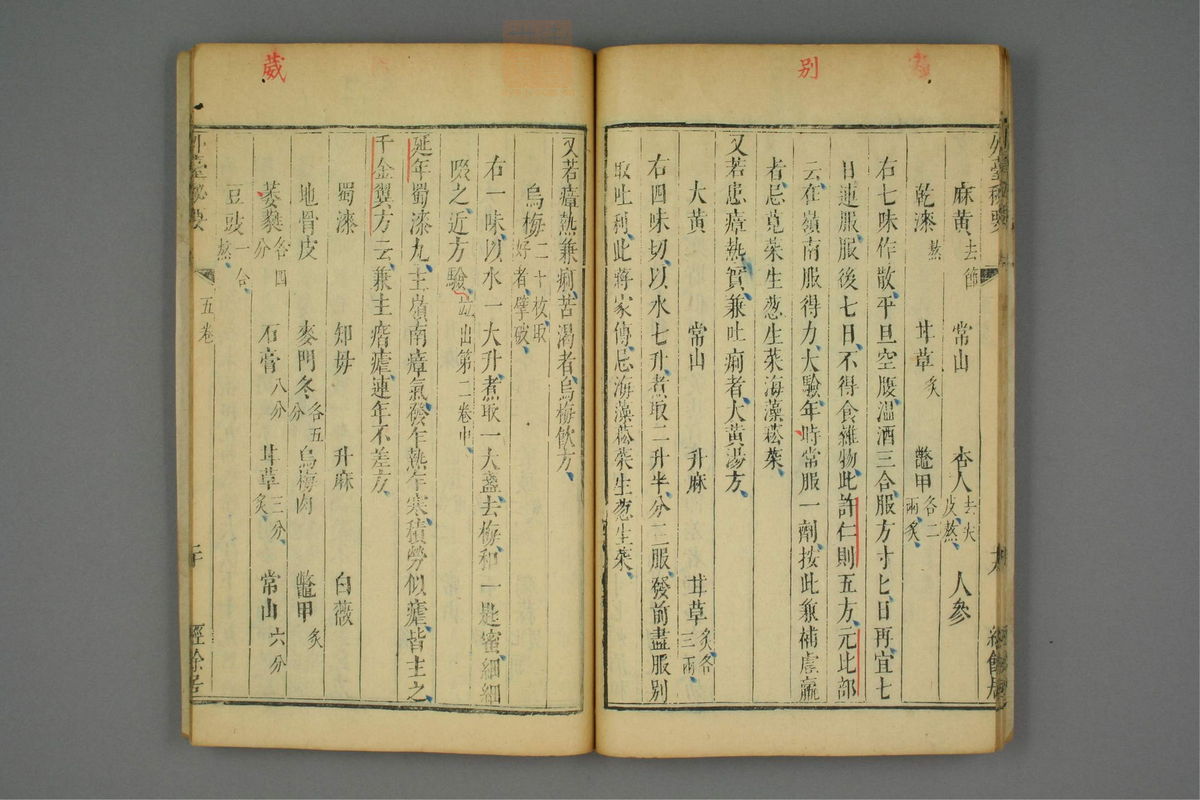 別
外臺秘要
麻黃去節 常山 杏人去尖皮熬 人參
乾漆熬 甘草炙 鼈甲各二兩炙
右七味作散平旦空腹溫酒三合服方寸匕日再宜七
日連服服後七日不得食雜物此許仁則五方元比部
云在嶺南服得力大驗年時常服一劑按此兼補虛羸
者忌莧菜生葱生菜海藻菘菜
又若患瘴熱實兼吐痢者大黃湯方
大黃 常山 升麻 甘草炙各三兩
右四味切以水七升煮取二升半分三服發前盡服別
取吐利此蔣家傳忌海藻菘菜生葱生菜
葳
又若瘴熱兼痢苦渴者烏梅飲方
烏梅二十枚取好者擘破
右一味以水一大升煮取一大盞去梅和一匙蜜細細
啜之近方驗並出第二卷中
延年蜀漆丸主嶺南瘴氣發乍熱乍寒積勞似瘧皆主之
千金翼方云兼主痞瘧連年不差方
蜀漆 知母 升麻 白薇
地骨皮 麥門冬各五分 烏梅肉 鼈甲炙
萎蕤各四分 石膏八分 甘草三分炙 常山六分
豆豉一合熬
外臺秘要 五卷 二十 經餘居